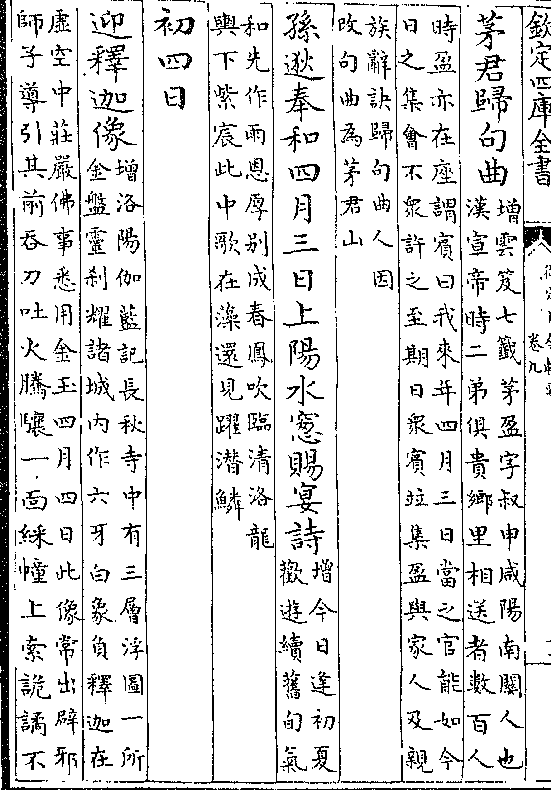 欽定四庫全書
卷九
茅君歸句曲
增雲笈七籤茅盈字叔申咸陽南關人也
漢宣帝時二弟俱貴鄉里相送者數百人
時盈亦在座謂賓曰我來年四月三日當之官能如今
日之集會不衆許之至期日衆賓竝集盈與家人及親
族辭訣歸句曲人因
改句曲為茅君山
孫逖奉和四月三日上陽水窓賜宴詩
增今日逢初夏
歡遊續舊旬氣
和先作雨恩厚别成春鳳吹臨清洛龍
輿下紫宸此中歌在藻還見躍潛鱗
初四日
迎釋迦像
增洛陽伽藍記長秋寺中有三層浮圖一所
金盤靈刹耀諸城内作六牙白象負釋迦在
虛空中莊嚴佛事悉用金玉四月四日此像常出辟邪
師子導引其前吞刀吐火騰驤一面綵幢上索詭譎不